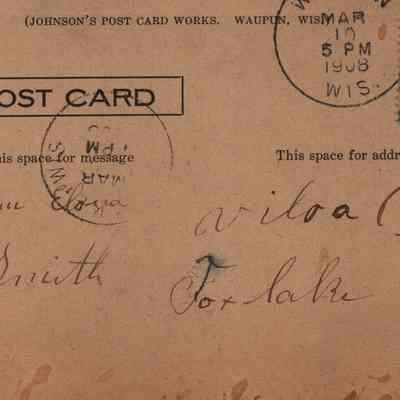 (JOHNSON'S POST CARD WORKS. WAUPUN, WIS
MAR
10
5 PM
1908
WIS.
OST CARD
PM
MAR
his space for message
This space for addr
Elosra
Viloa
Smith
Fox lake